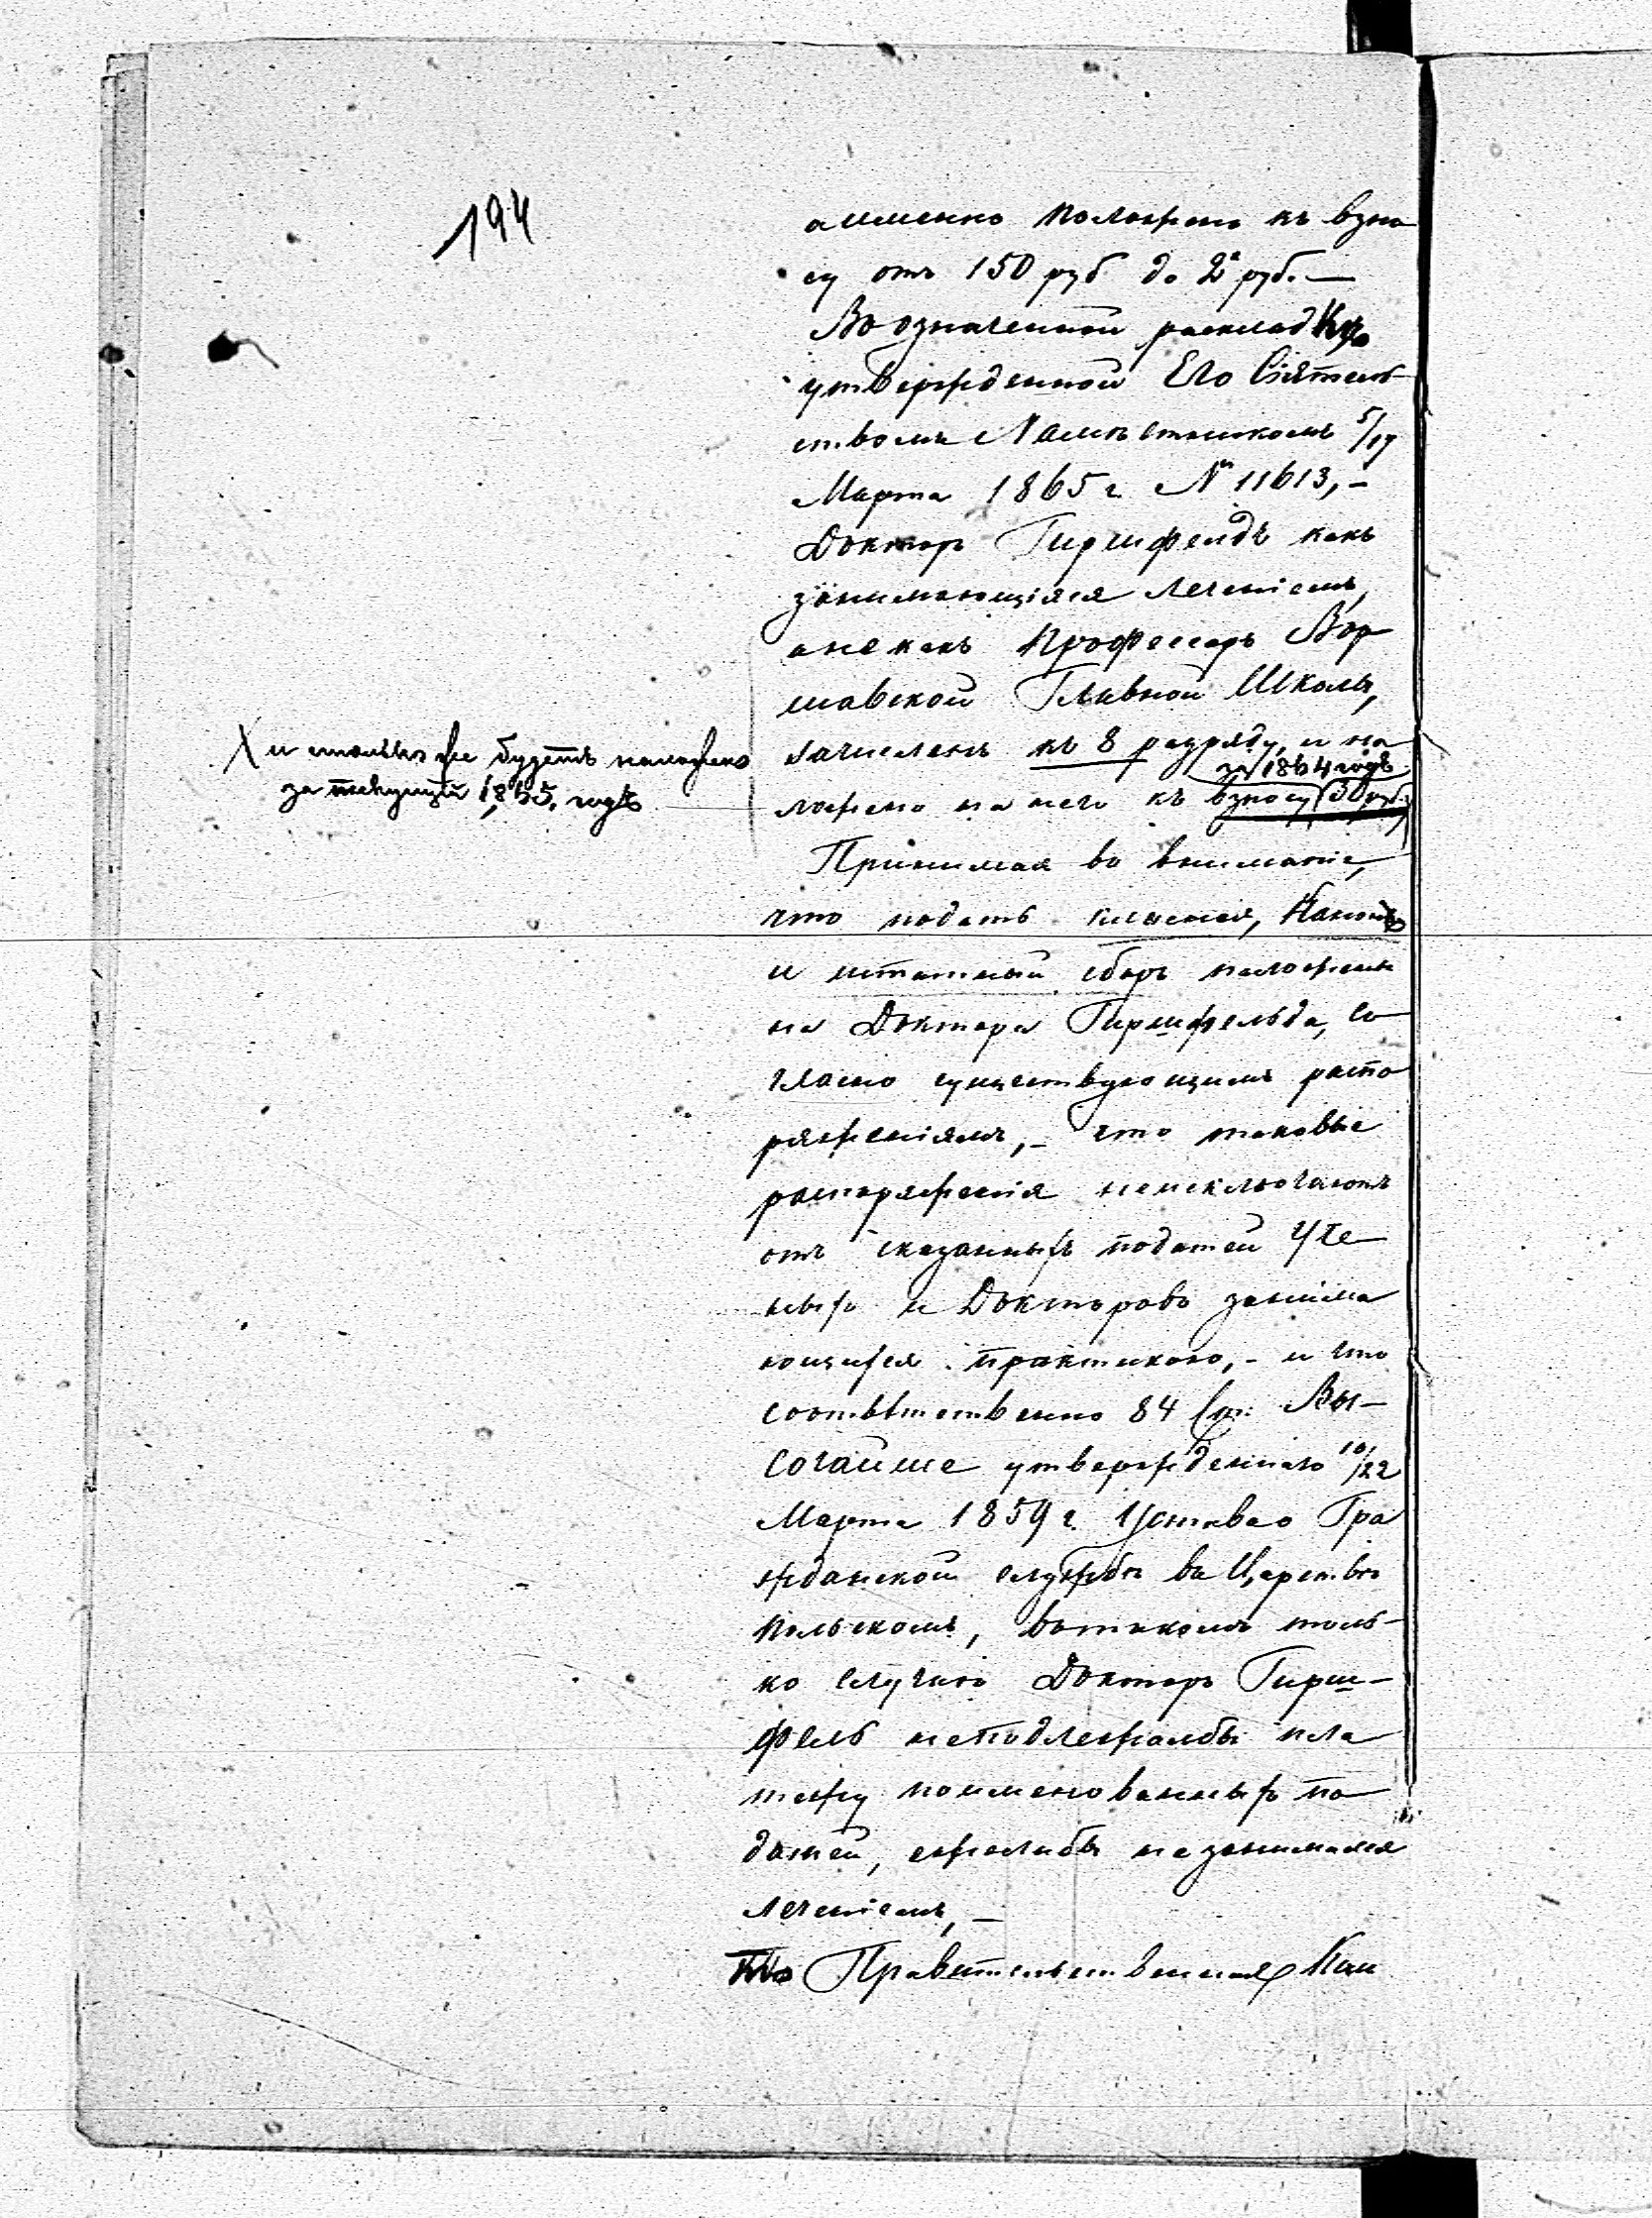 194
а именно положено къ взно
су отъ 150 руб до 2х руб. —
Во означенной раскладкѣ
утвержденной Его Сіятель-
ствомъ Намѣстникомъ 5/17
Марта 1865 г. № 11613, -
Докторъ Гиршфелдъ какъ
занимающійся леченіемъ,
а не какъ Профессоръ Вар
шавской Главной Школы,
зачисленъ къ 8 разряду, и на
за 1864 годъ
ложено на него къ взносу 50 руб.
Х и столько же будетъ наложено
за текущій 1865. годъ
Принимая во вниманіе,
что подать класная, Канонъ
и штатный сборъ наложены
на Доктора Гиршфельда, со
гласно существующимъ распо
ряженіямъ, - что таковые
распоряженія неисключаютъ
отъ сказанныхъ податей Уче-
ныхъ и Докторовъ занима
ющихся практикою, - и что
соотвѣтственно 84 Ст: Вы-
сочайше утвержденнаго 10/22
Марта 1859 г. Устава о Гра
жданской службѣ въ Царствѣ
Польскомъ, въ такомъ толь-
ко случаѣ Докторъ Гирш-
фель неподлежалбы пла
тежу поименованныхъ по
датей, ежелибы не занимался
леченіемъ, —
Правительственная Ком